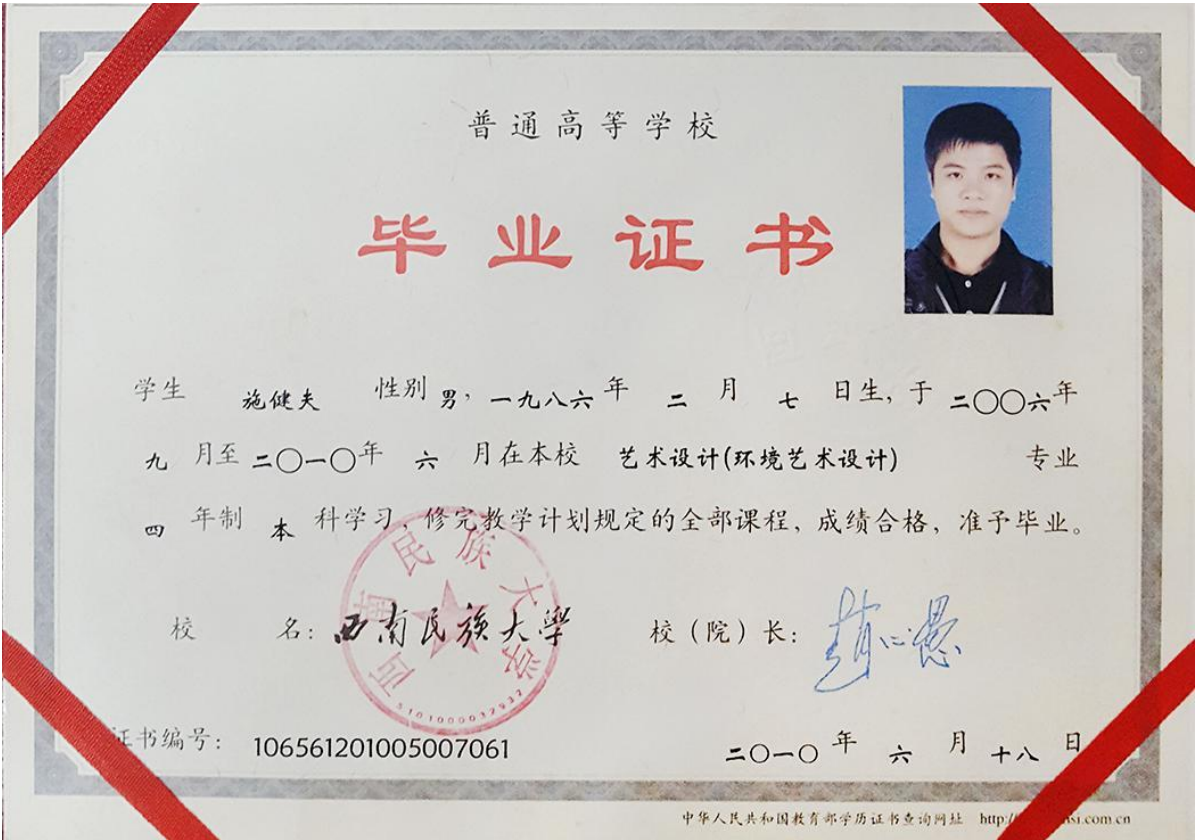 普通高等学校
毕业证书
学生 施健夫 性别 男，一九八六年 二 月 七 日生，于 二〇〇六年
九 月至 二〇一〇年 六 月在本校 艺术设计(环境艺术设计) 专业
四 年制 本 科学习，修完教学计划规定的全部课程，成绩合格，准予毕业。
校 名：西南民族大學 校（院）长：赵心愚
西南民族大学
5101000032932
证书编号：106561201005007061 二〇一〇 年 六 月 十八 日
中华人民共和国教育部学历证书查询网址 http:/ si.com.cn